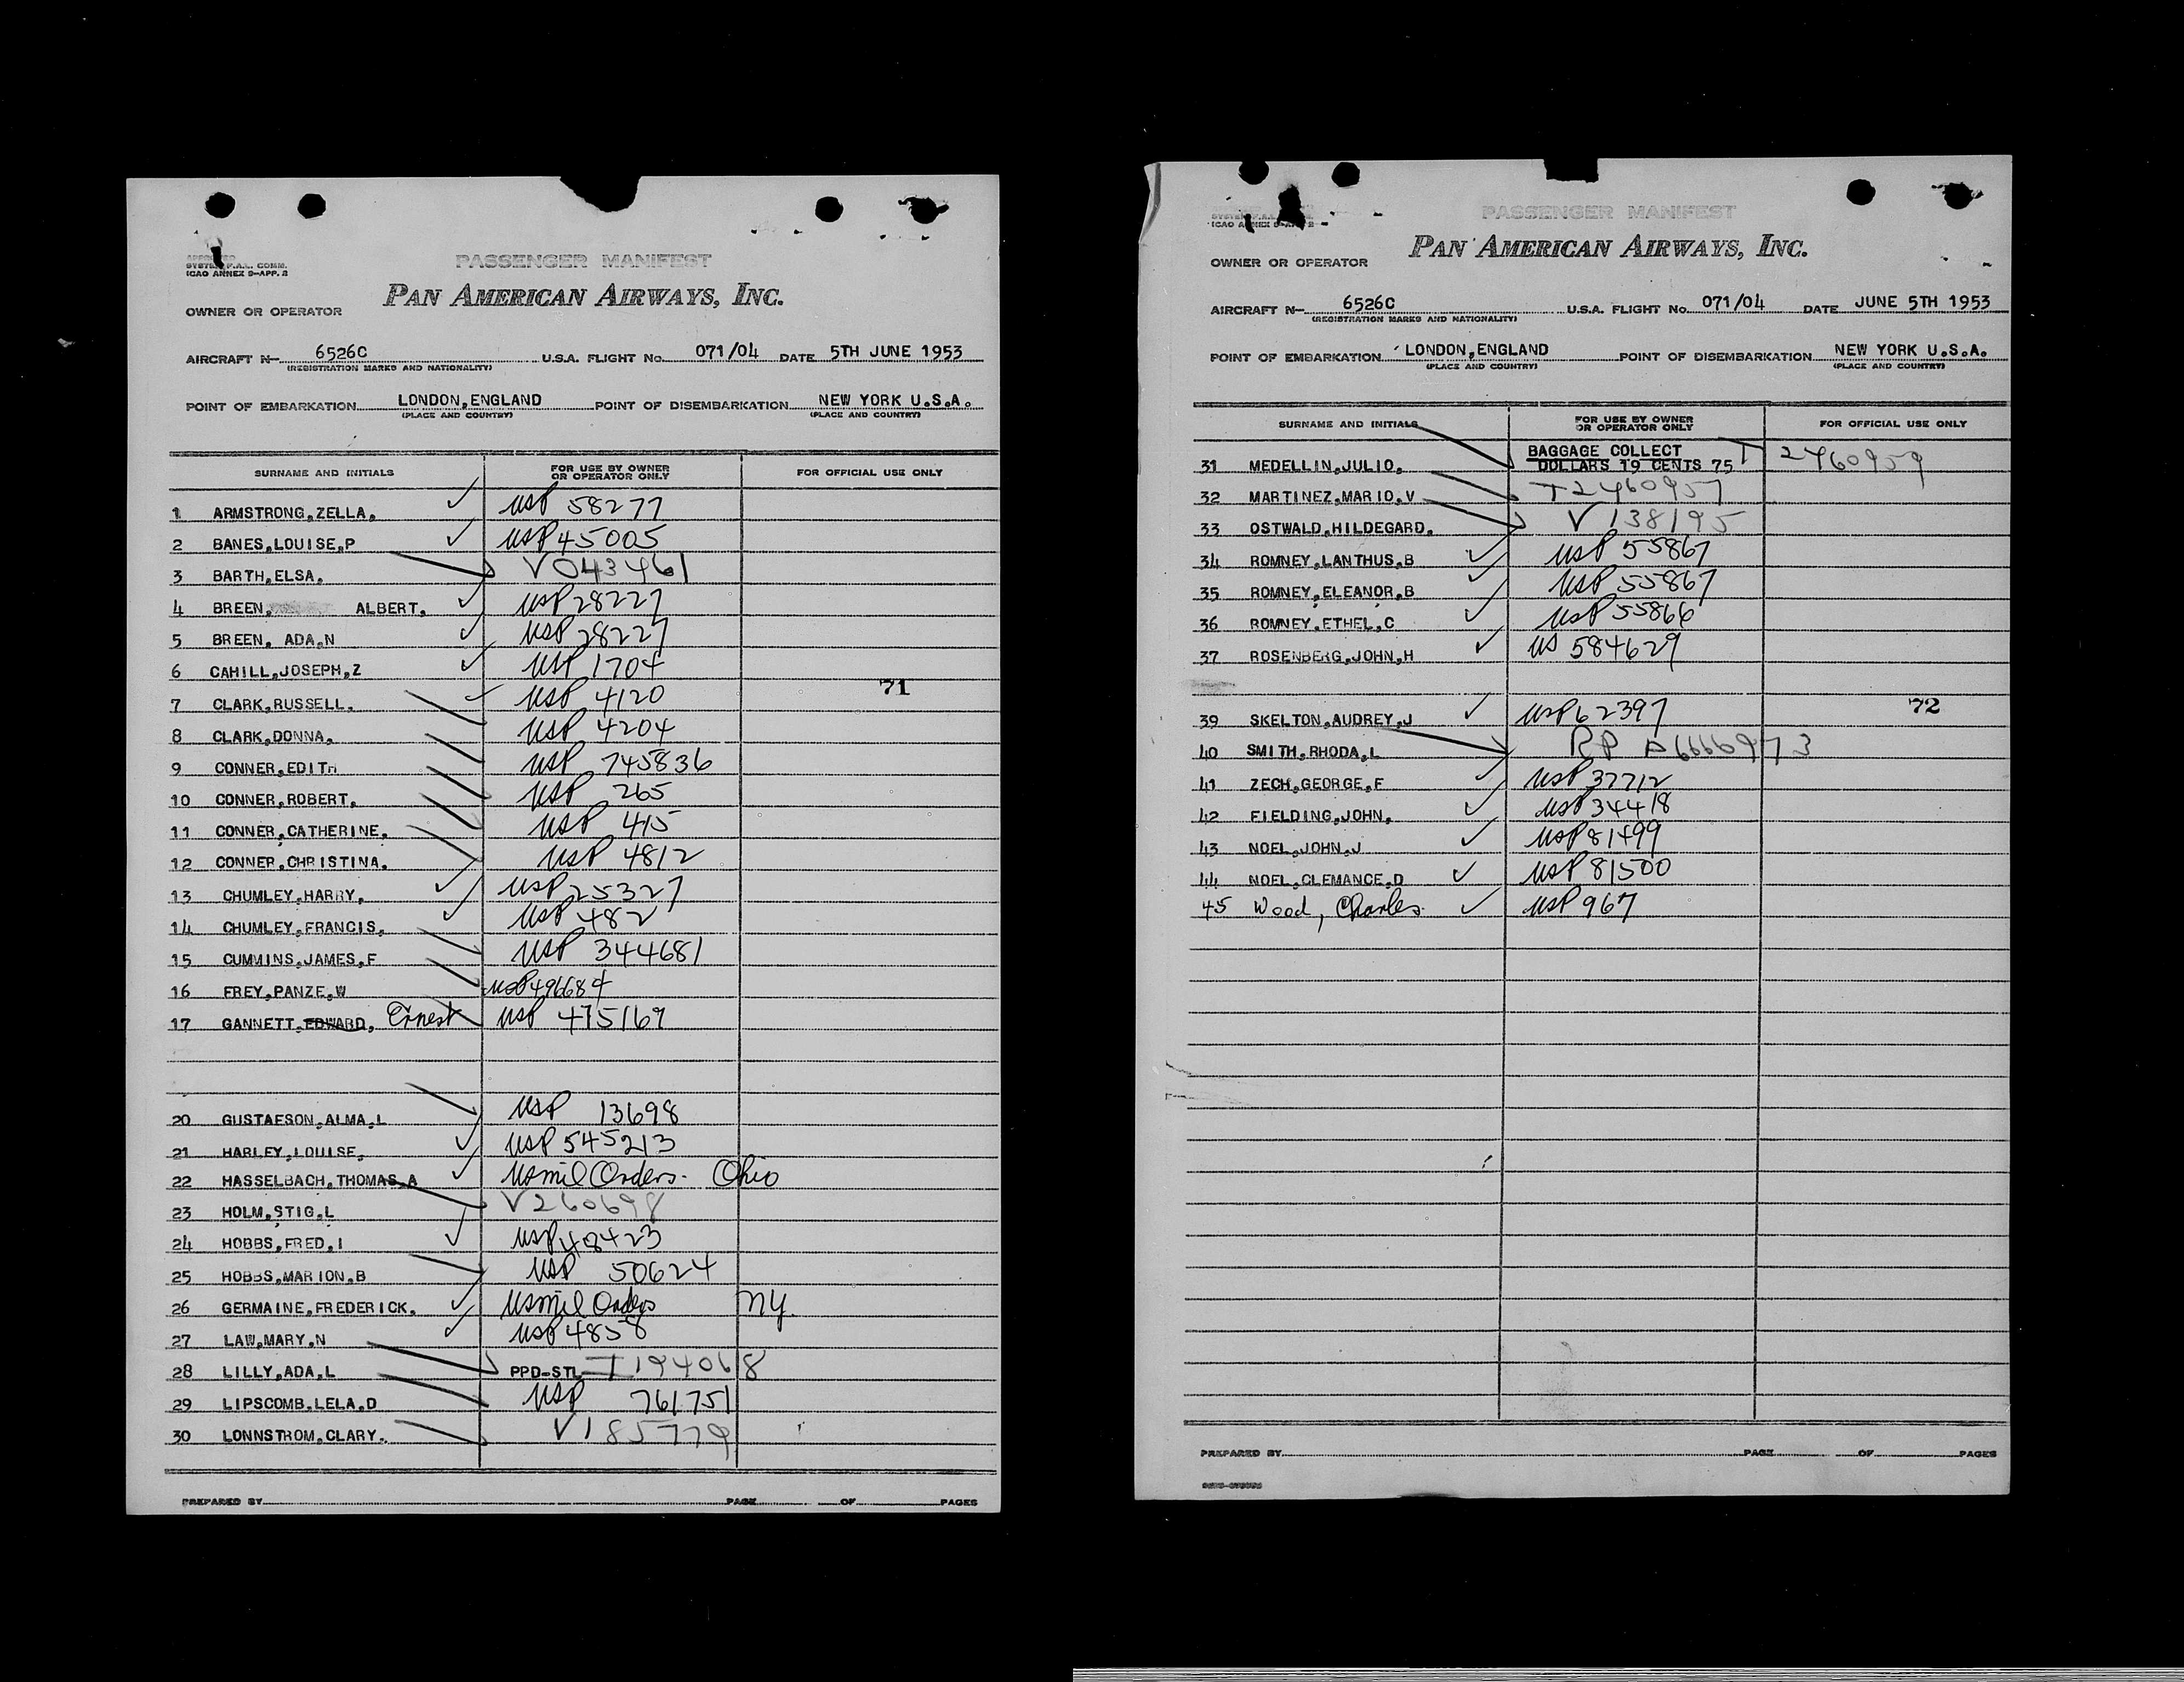 PASSENGER MANIFEST
SYSTEM P.A.L. COMM.
ICAO ANNEX 9-APP. 2
PAN AMERICAN AIRWAYS, INC.
OWNER OR OPERATOR
AIRCRAFT N- 6526C U.S.A. FLIGHT No. 071/04 DATE 5TH JUNE 1953
(REGISTRATION MARKS AND NATIONALITY)
POINT OF EMBARKATION LONDON,ENGLAND POINT OF DISEMBARKATION NEW YORK U.S.A.
(PLACE AND COUNTRY) (PLACE AND COUNTRY)
SURNAME AND INITIALS FOR USE BY OWNER OR OPERATOR ONLY FOR OFFICIAL USE ONLY
1 ARMSTRONG,ZELLA. USP 58277
2 BANES,LOUISE,P USP 45005
3 BARTH,ELSA. V 043461
4 BREEN, ALBERT. USP 28227
5 BREEN, ADA,N USP 28227
6 CAHILL,JOSEPH,Z USP 1704
7 CLARK,RUSSELL. USP 4120 71
8 CLARK,DONNA. USP 4204
9 CONNER,EDITH USP 745836
10 CONNER,ROBERT. USP 265
11 CONNER,CATHERINE. USP 415
12 CONNER,CHRISTINA. USP 4812
13 CHUMLEY,HARRY. USP 25327
14 CHUMLEY,FRANCIS. USP 482
15 CUMMINS,JAMES,F USP 344681
16 FREY,PANZE,W USP 496684
17 GANNETT,EDWARD, Ernest USP 475169
20 GUSTAFSON,ALMA,L USP 13698
21 HARLEY,LOUISE. USP 545213
22 HASSELBACH,THOMAS,A US mil Orders. Ohio
23 HOLM,STIG,L V 260698
24 HOBBS,FRED,I USP 48423
25 HOBBS,MARION,B USP 50624
26 GERMAINE,FREDERICK. US mil Orders NY
27 LAW,MARY,N USP 4858
28 LILLY,ADA,L PPD-STL I 194068
29 LIPSCOMB,LELA,D USP 761751
30 LONNSTROM,CLARY. V 185779
PREPARED BY PAGE OF PAGES
PASSENGER MANIFEST
ICAO ANNEX 9-APP 2
PAN AMERICAN AIRWAYS, INC.
OWNER OR OPERATOR
AIRCRAFT N- 6526C U.S.A. FLIGHT No. 071/04 DATE JUNE 5TH 1953
(REGISTRATION MARKS AND NATIONALITY)
POINT OF EMBARKATION LONDON,ENGLAND POINT OF DISEMBARKATION NEW YORK U.S.A.
(PLACE AND COUNTRY) (PLACE AND COUNTRY)
SURNAME AND INITIALS FOR USE BY OWNER OR OPERATOR ONLY FOR OFFICIAL USE ONLY
BAGGAGE COLLECT
31 MEDELLIN,JULIO. DOLLARS 19 CENTS 75 T 2460959
32 MARTINEZ,MARIO,V T 2460957
33 OSTWALD,HILDEGARD. V 138195
34 ROMNEY,LANTHUS,B USP 55867
35 ROMNEY,ELEANOR,B USP 55867
36 ROMNEY,ETHEL,C USP 55866
37 ROSENBERG,JOHN,H US 584629
39 SKELTON,AUDREY,J USP 62397 72
40 SMITH,RHODA,L RP A6666973
41 ZECH,GEORGE,F USP 37712
42 FIELDING,JOHN. USP 34418
43 NOEL,JOHN,J USP 81499
44 NOEL,CLEMANCE,D USP 81500
45 Wood, Charles. USP 967
PREPARED BY PAGE OF PAGES